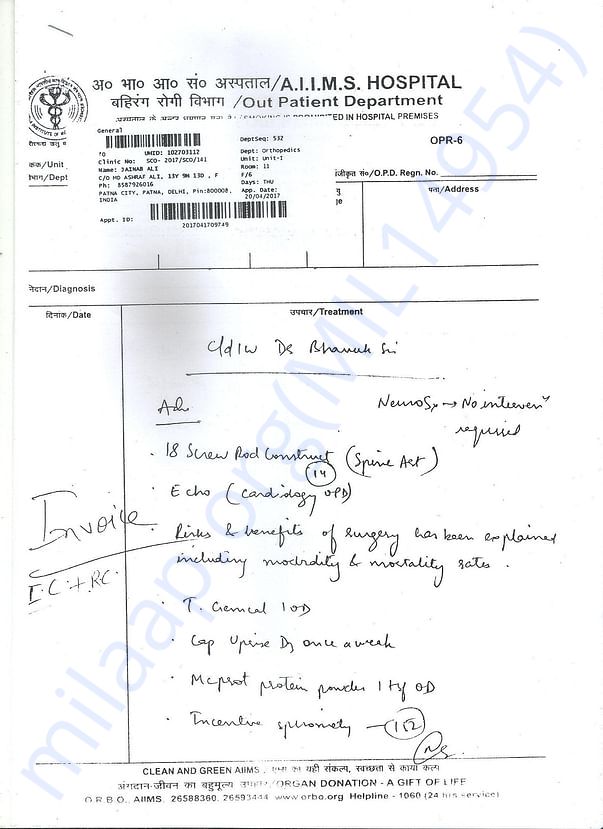 अ० भा० आ० सं० अस्पताल/A.I.I.M.S. HOSPITAL
बहिरंग रोगी विभाग /Out Patient Department
IN HOSPITAL PREMISES
General
OPR-6
DeptSeq: 532
UHID: 102703112
Clinic No: SCO- 2017/SCO/141
Dept: Orthopedics
Unit: Unit-I
Name: JAINAB ALI
Room: 11
C/O MO ASHRAF ALI, 13Y 9M 13D , F
F/6
Ph: 8587926016
Days: THU
PATNA CITY, PATNA, DELHI, Pin:800008, INDIA
App. Date: 20/04/2017
Appt. ID:
2017041709749
/Unit
/Dept
/O.P.D. Regn. No.
पता/Address
/Diagnosis
दिनांक/Date
उपचार/Treatment
c/d/w Dr Bhavuk Sir
Adv
NeuroSx → No interven
required
18 Screw Rod Construct (Spine Art)
14
Echo (Cardiology OPD)
Invoice
Risks & benefits of surgery has been explained
including modrdity & mortality rates.
I.C. + R.C.
T. Gemcal 1 OD
Cap Uprise D3 once a week
protein powder OD
Incentive spirometry - 152
CLEAN AND GREEN AIIMS
का यही संकल्प, स्वच्छता से काया कल्प
अंगदान-जीवन का बहुमूल्य उपहार/ORGAN DONATION - A GIFT OF LIFE
O.R.B.O., AIIMS, 26588360, 26593444 www.orbo.org Helpline - 1060 (24 hrs service)
milaap.org(MIL149954)